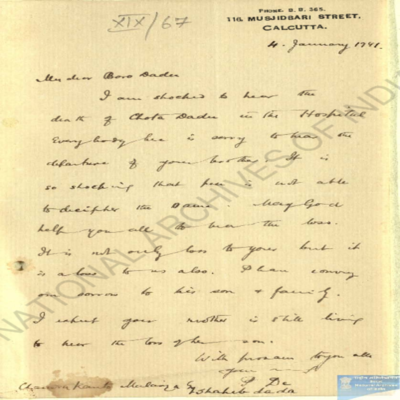 XIX/67
PHONE. B. B. 365.
116, MUSJIDBARI STREET,
CALCUTTA.
4. January 1941.
My dear Boro Dadu
I am shocked to hear the
death of Chota Dadu in the Hospital
Everybody here is sorry to hear the
departure of your brother. It is
so shocking that pen is not able
to decipher the same. May God
help you all to bear the loss.
It is not only loss to yours but it
is a loss to us also. Please convey
our sorrow to his son & family.
I expect your mother is still living
to hear the loss of her son.
With pronam to you all
NATIONAL ARCHIVES OF INDIA